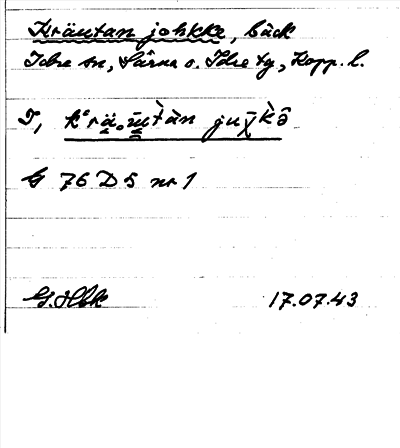 Kräutan johkke, bäck
Idre sn, Särna o. Idre tg, Kopp. l.
G 76 D 5 nr 1
G. Hbk 17.07.43